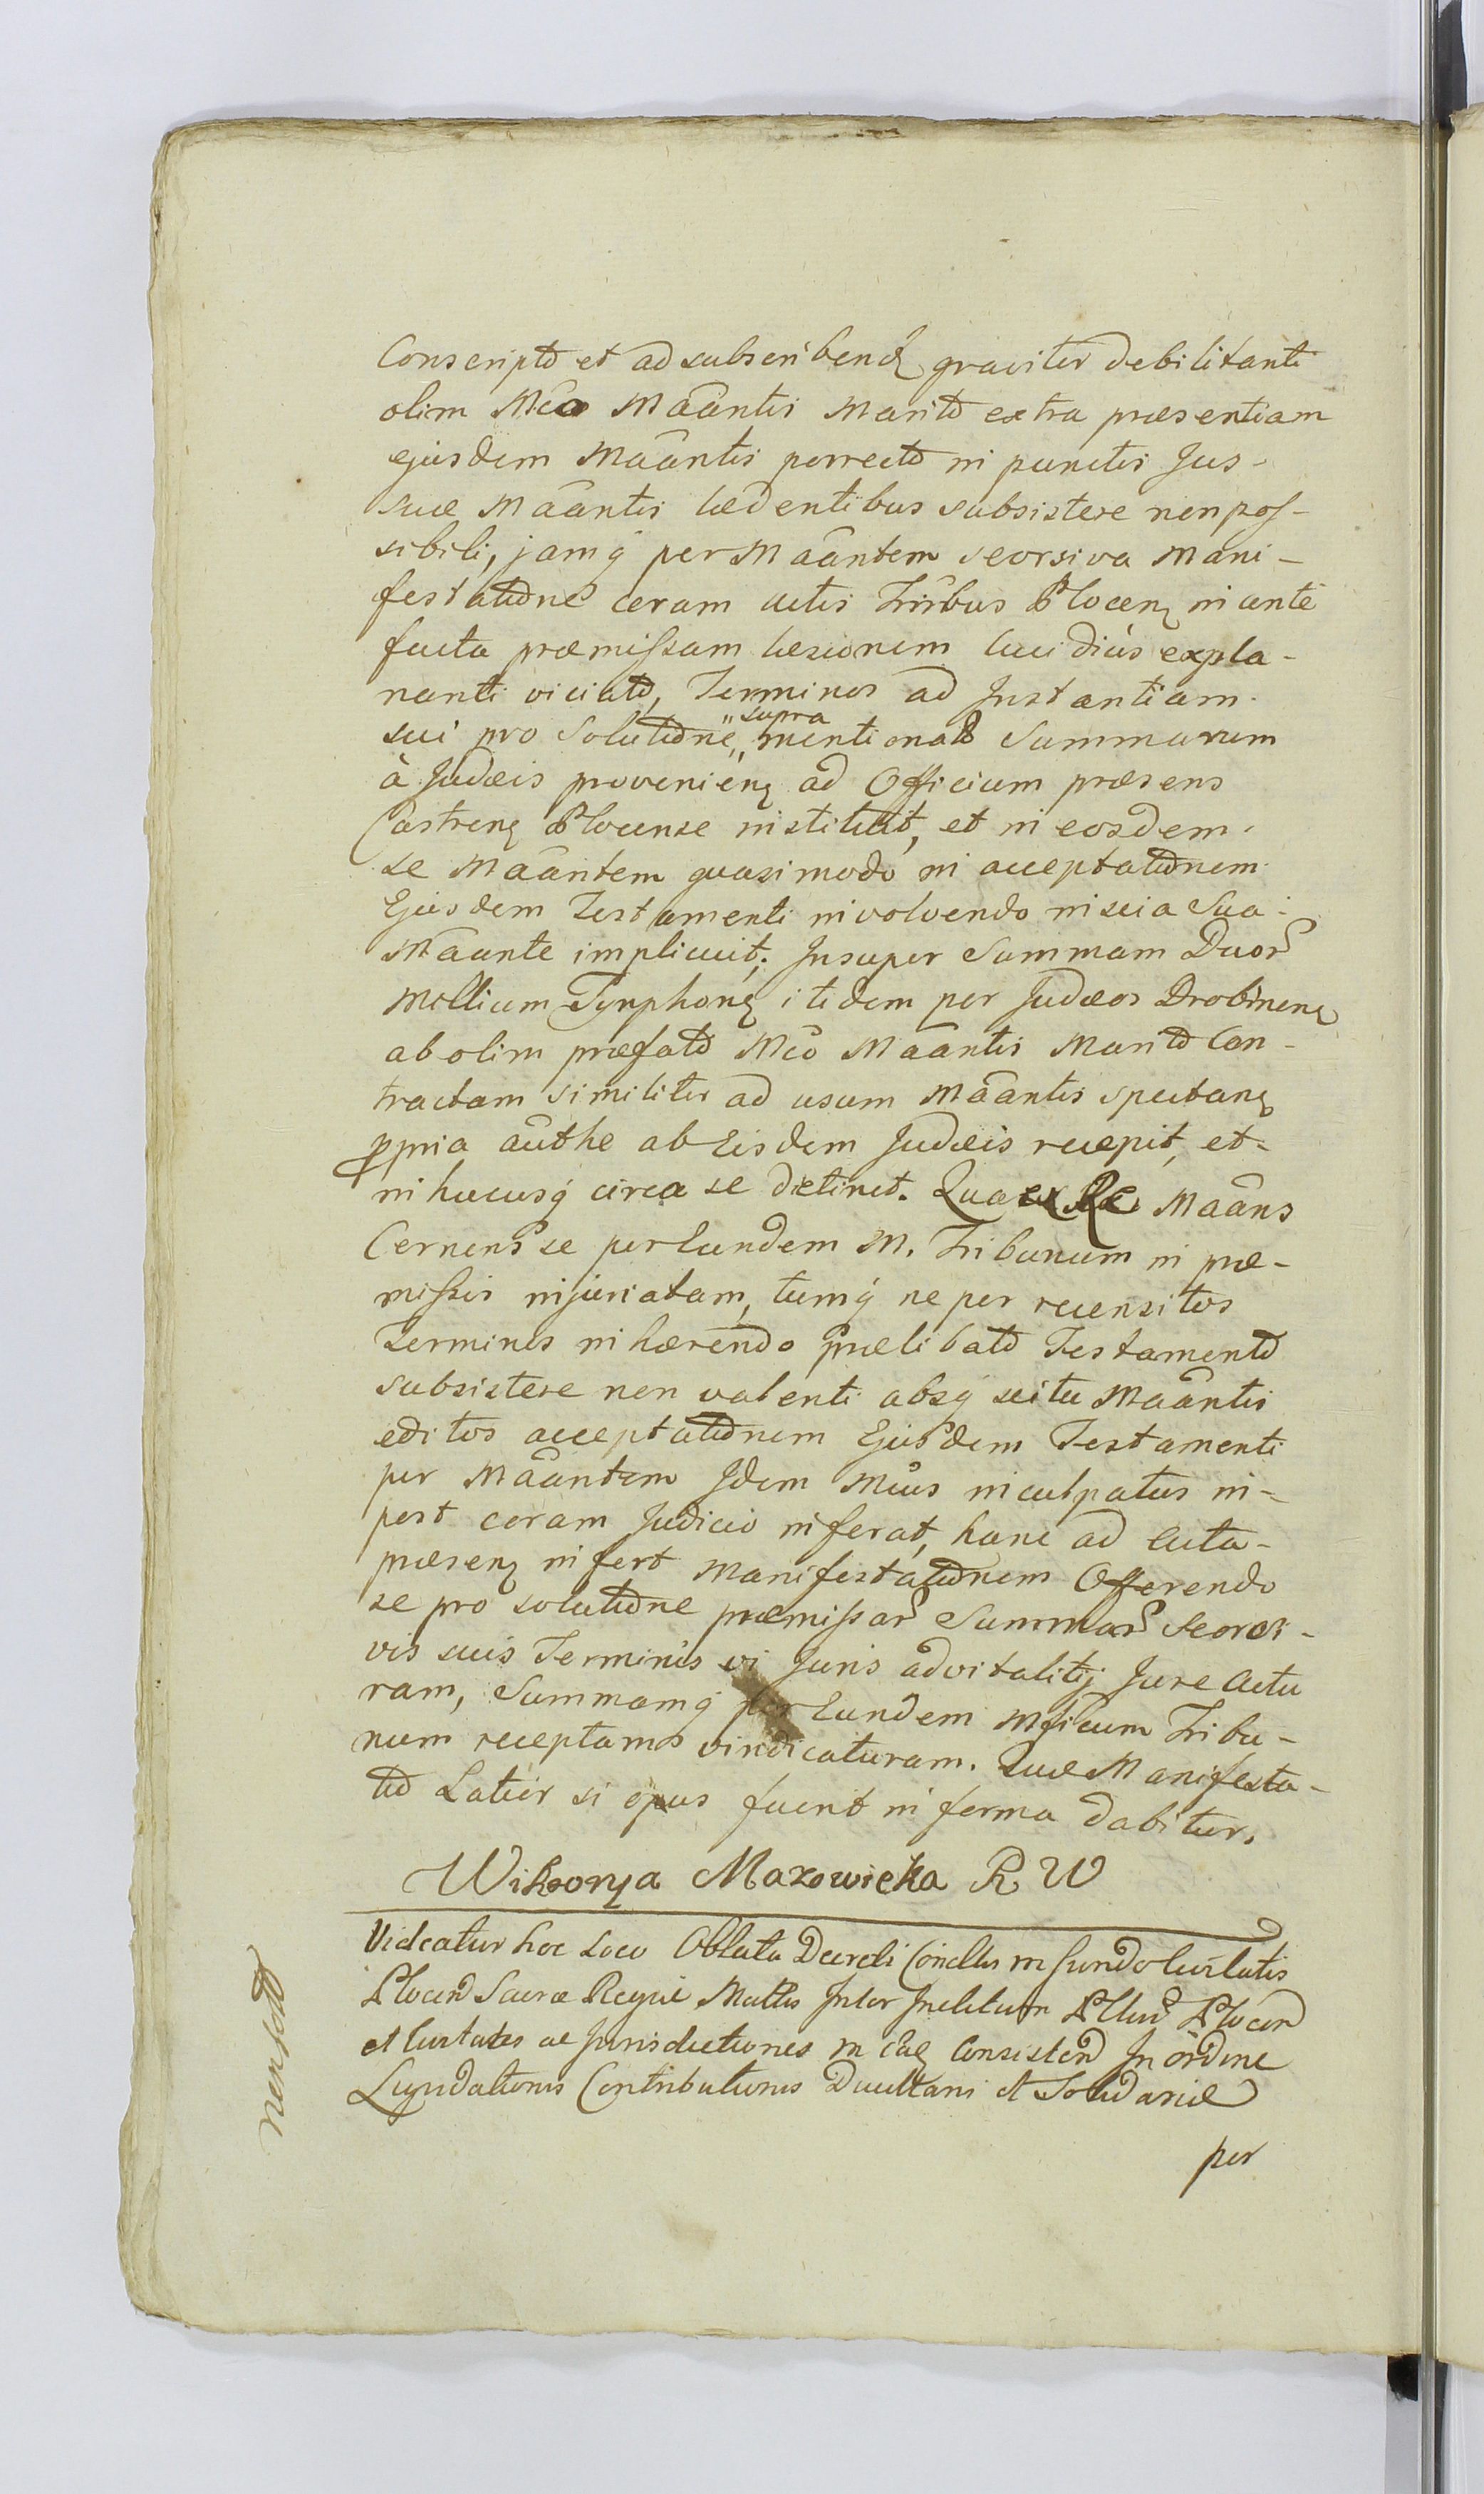 Conscripto et ad subscribend graviter debilitanti
olim Mco Maantis Marito extra præsentiam
ejusdem Maantis porrecto in punctis Jus-
suæ Maantis lædentibus subsistere non pos-
sibili, jamq per Maantem seorsiva Mani-
festatione coram actis Tribus Plocen in ante
facta præmissam læsionem lucidius expla-
nanti viciato, Terminos ad Instantiam
sui pro Solutione, supra mentionat Summarum
à Judæis provenien ad Officium præsens
Castren Plocense instituit, et in eosdem
se Maantem quasi modo in acceptationem
Ejusdem Testamenti involvendo inscia Sua
Maante implicuit; Insuper Summam Duor
Millium Tynphon itidem per Judæos Drobinen
ab olim præfato Mco Maantis Marito Con-
tractam similiter ad usum Maantis spectan
ppria authe ab Eisdem Judæis recepit, et
in hucusq circa se detinet. Qua ex Re Maans
Cernens se per Eundem M. Tribunum in præ-
missis injuriatam, tumq ne per recensitos
Terminos inhærendo prælibato Testamento
subsistere non valenti absq scitu Maantis
editos acceptationem Ejusdem Testamenti
per Maantem Idem Mcus inculpatus in-
post coram Judicio inferat, hanc ad Acta
præsen infert Manifestationem Offerendo
se pro solutione præmissar Summar Seorsi-
vis suis Terminis vi Juris advitalitij Jure Actu
ram, Summamq per Eundem Mficum Tribu-
num receptam vindicaturam. Quæ Manifesta-
tio Latior si opus fuerit in forma dabitur.
Wiktorya Mazowiecka R W
Videatur hoc Loco Oblata Decreti Conctlus in fundo Civitatis
Plocen Sacræ Regiæ Mattis Inter Inclitum Pttum Plocen
et Civitates ac Jurisdictiones in eaq Consisten In ordine
Liquidationis Contributionis Ducillani et Solidariæ
per